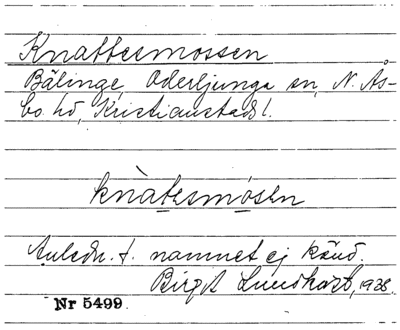 Knattesmossen
Bälinge, Oderljunga sn, N. Ås-
bo hd, Kristianstads l.
knàtesmósen
Anledn. t. namnet ej känd.
Birgit Lundkvist, 1928.
Nr 5499